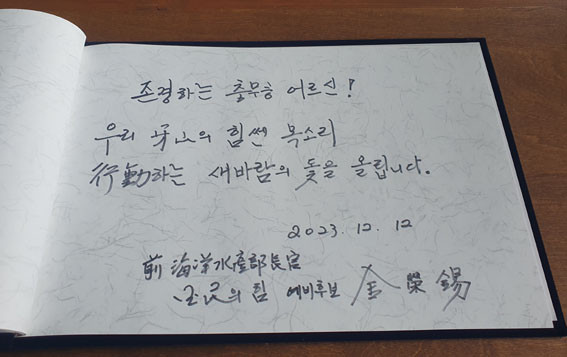 존령하는 충무공 어르신!
우리 牙山의 힘쎈 목소리
行動하는 새바람의 돛을 올립니다.
2023. 12. 12
前 海洋水産部長官
国民의힘 예비후보 金榮錫